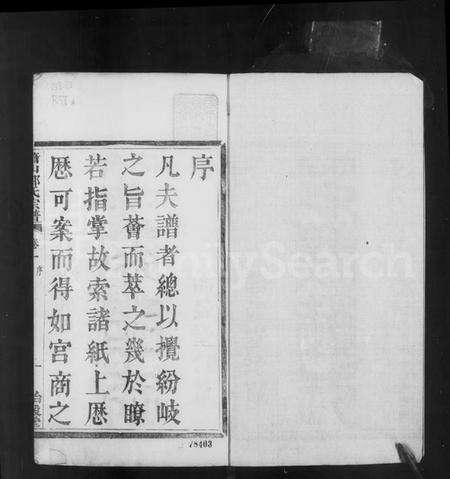 序
凡夫譜者總以攬紛岐
之旨薈而萃之幾於瞭
若指掌故索諸紙上歴
歴可案而得如宮商之
卷一 序
一
78403
FamilySearch